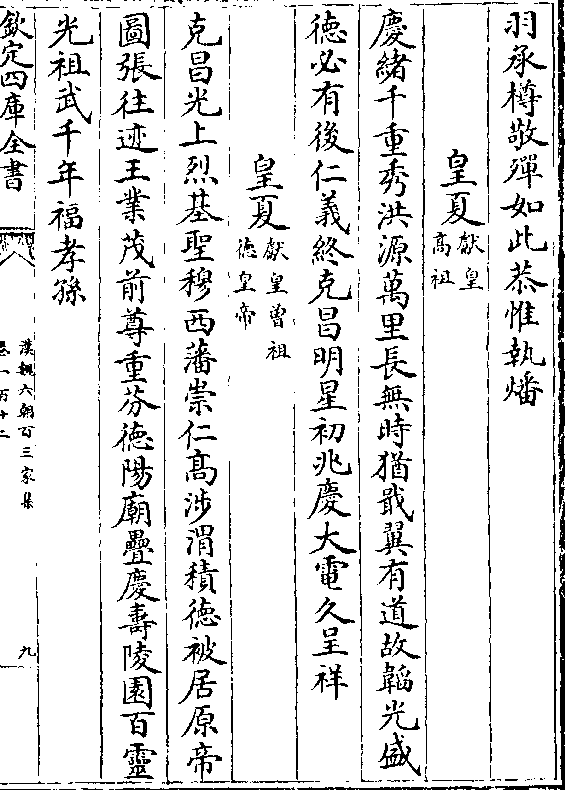 羽承樽敬殫如此恭惟執燔
皇夏獻皇高祖
慶緒千重秀洪源萬里長無時猶戢翼有道故韜光盛
德必有後仁義終克昌明星初兆慶大電久呈祥
皇夏獻皇曾祖德皇帝
克昌光上烈基聖穆西藩崇仁髙涉渭積德被居原帝
圖張往迹王業茂前尊重芬德陽廟疊慶壽陵園百靈
光祖武千年福孝孫
欽定四庫全書
漢魏六朝百三家集
卷一百十二
九